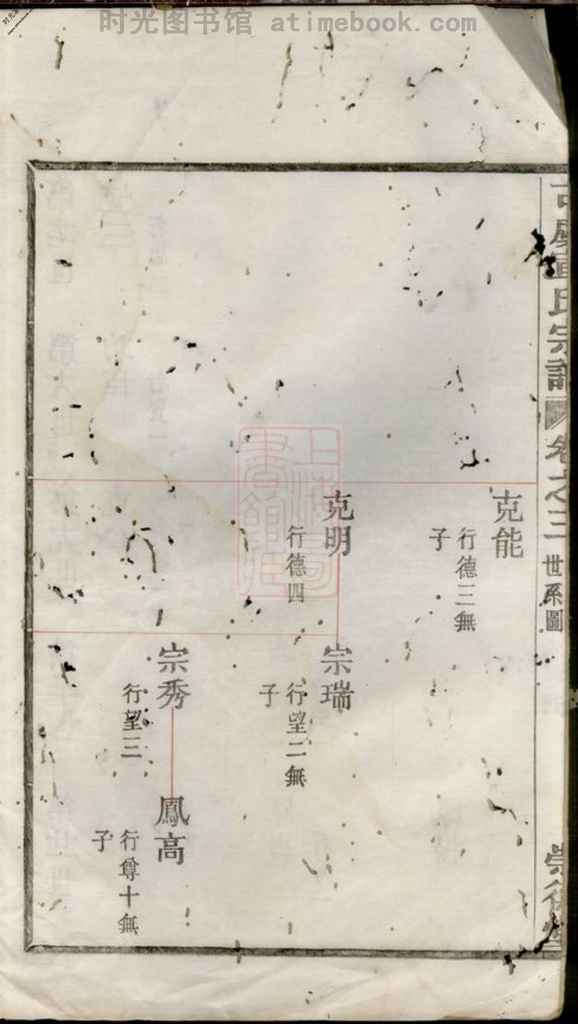 时光图书馆 atimebook.com
氏宗譜
卷之三
世系圖
克能
行德三無
子
克明
行德四
宗瑞
行望二無
子
宗秀
行望三
鳳高
行尊十無
子
上海圖書館藏